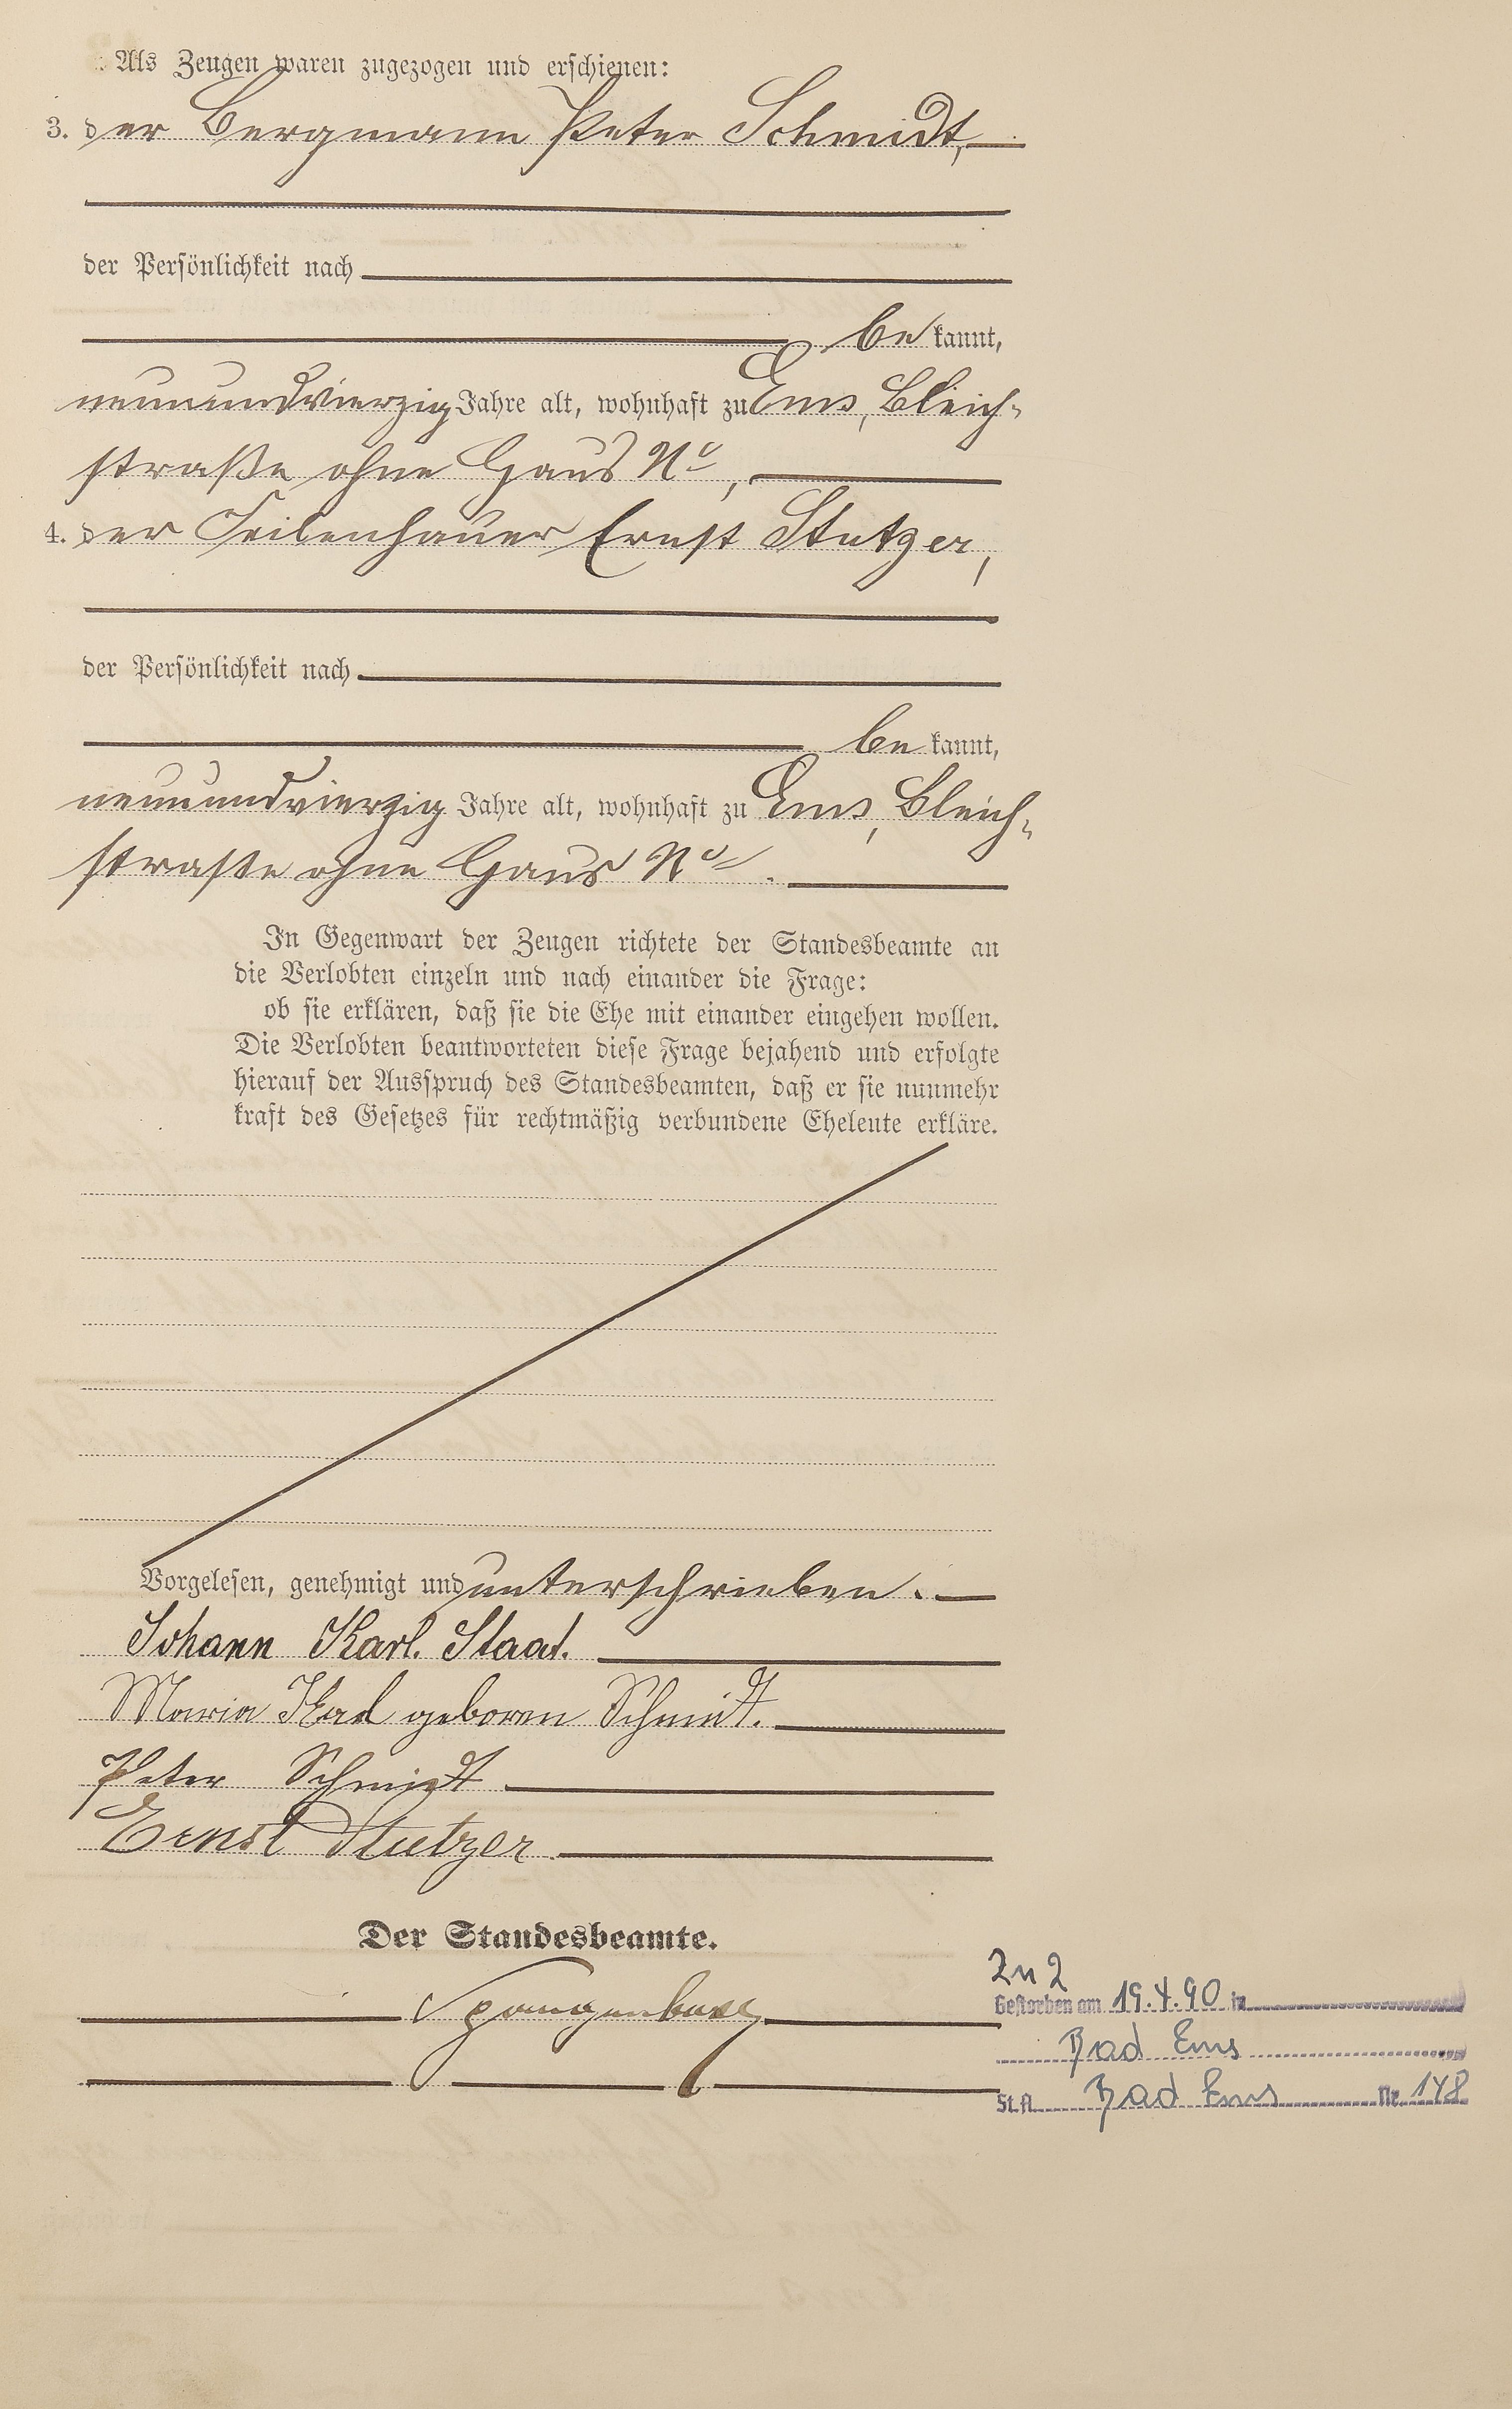 Als Zeugen waren zugezogen und erschienen:
3. der Bergmann Peter Schmidt,
der Persönlichkeit nach
bekannt,
neunundvierzig Jahre alt, wohnhaft zu Ems, Bleich-
straße ohne Haus No,
4. der Feilenhauer Ernst Stutzer,
der Persönlichkeit nach
bekannt,
neunundvierzig Jahre alt, wohnhaft zu Ems, Bleich-
straße ohne Haus No.
In Gegenwart der Zeugen richtete der Standesbeamte an
die Verlobten einzeln und nach einander die Frage:
ob sie erklären, daß sie die Ehe mit einander eingehen wollen.
Die Verlobten beantworteten diese Frage bejahend und erfolgte
hierauf der Ausspruch des Standesbeamten, daß er sie nunmehr
kraft des Gesetzes für rechtmäßig verbundene Eheleute erkläre.
Vorgelesen, genehmigt und unterschrieben.
Johann Karl. Staat.
Maria geboren Schmidt.
Peter Schmidt
Ernst Stutzer.
Der Standesbeamte.
Zu 2
Gestorben am 19.4.90 in
Bad Ems
St.A. Bad Ems Nr. 148